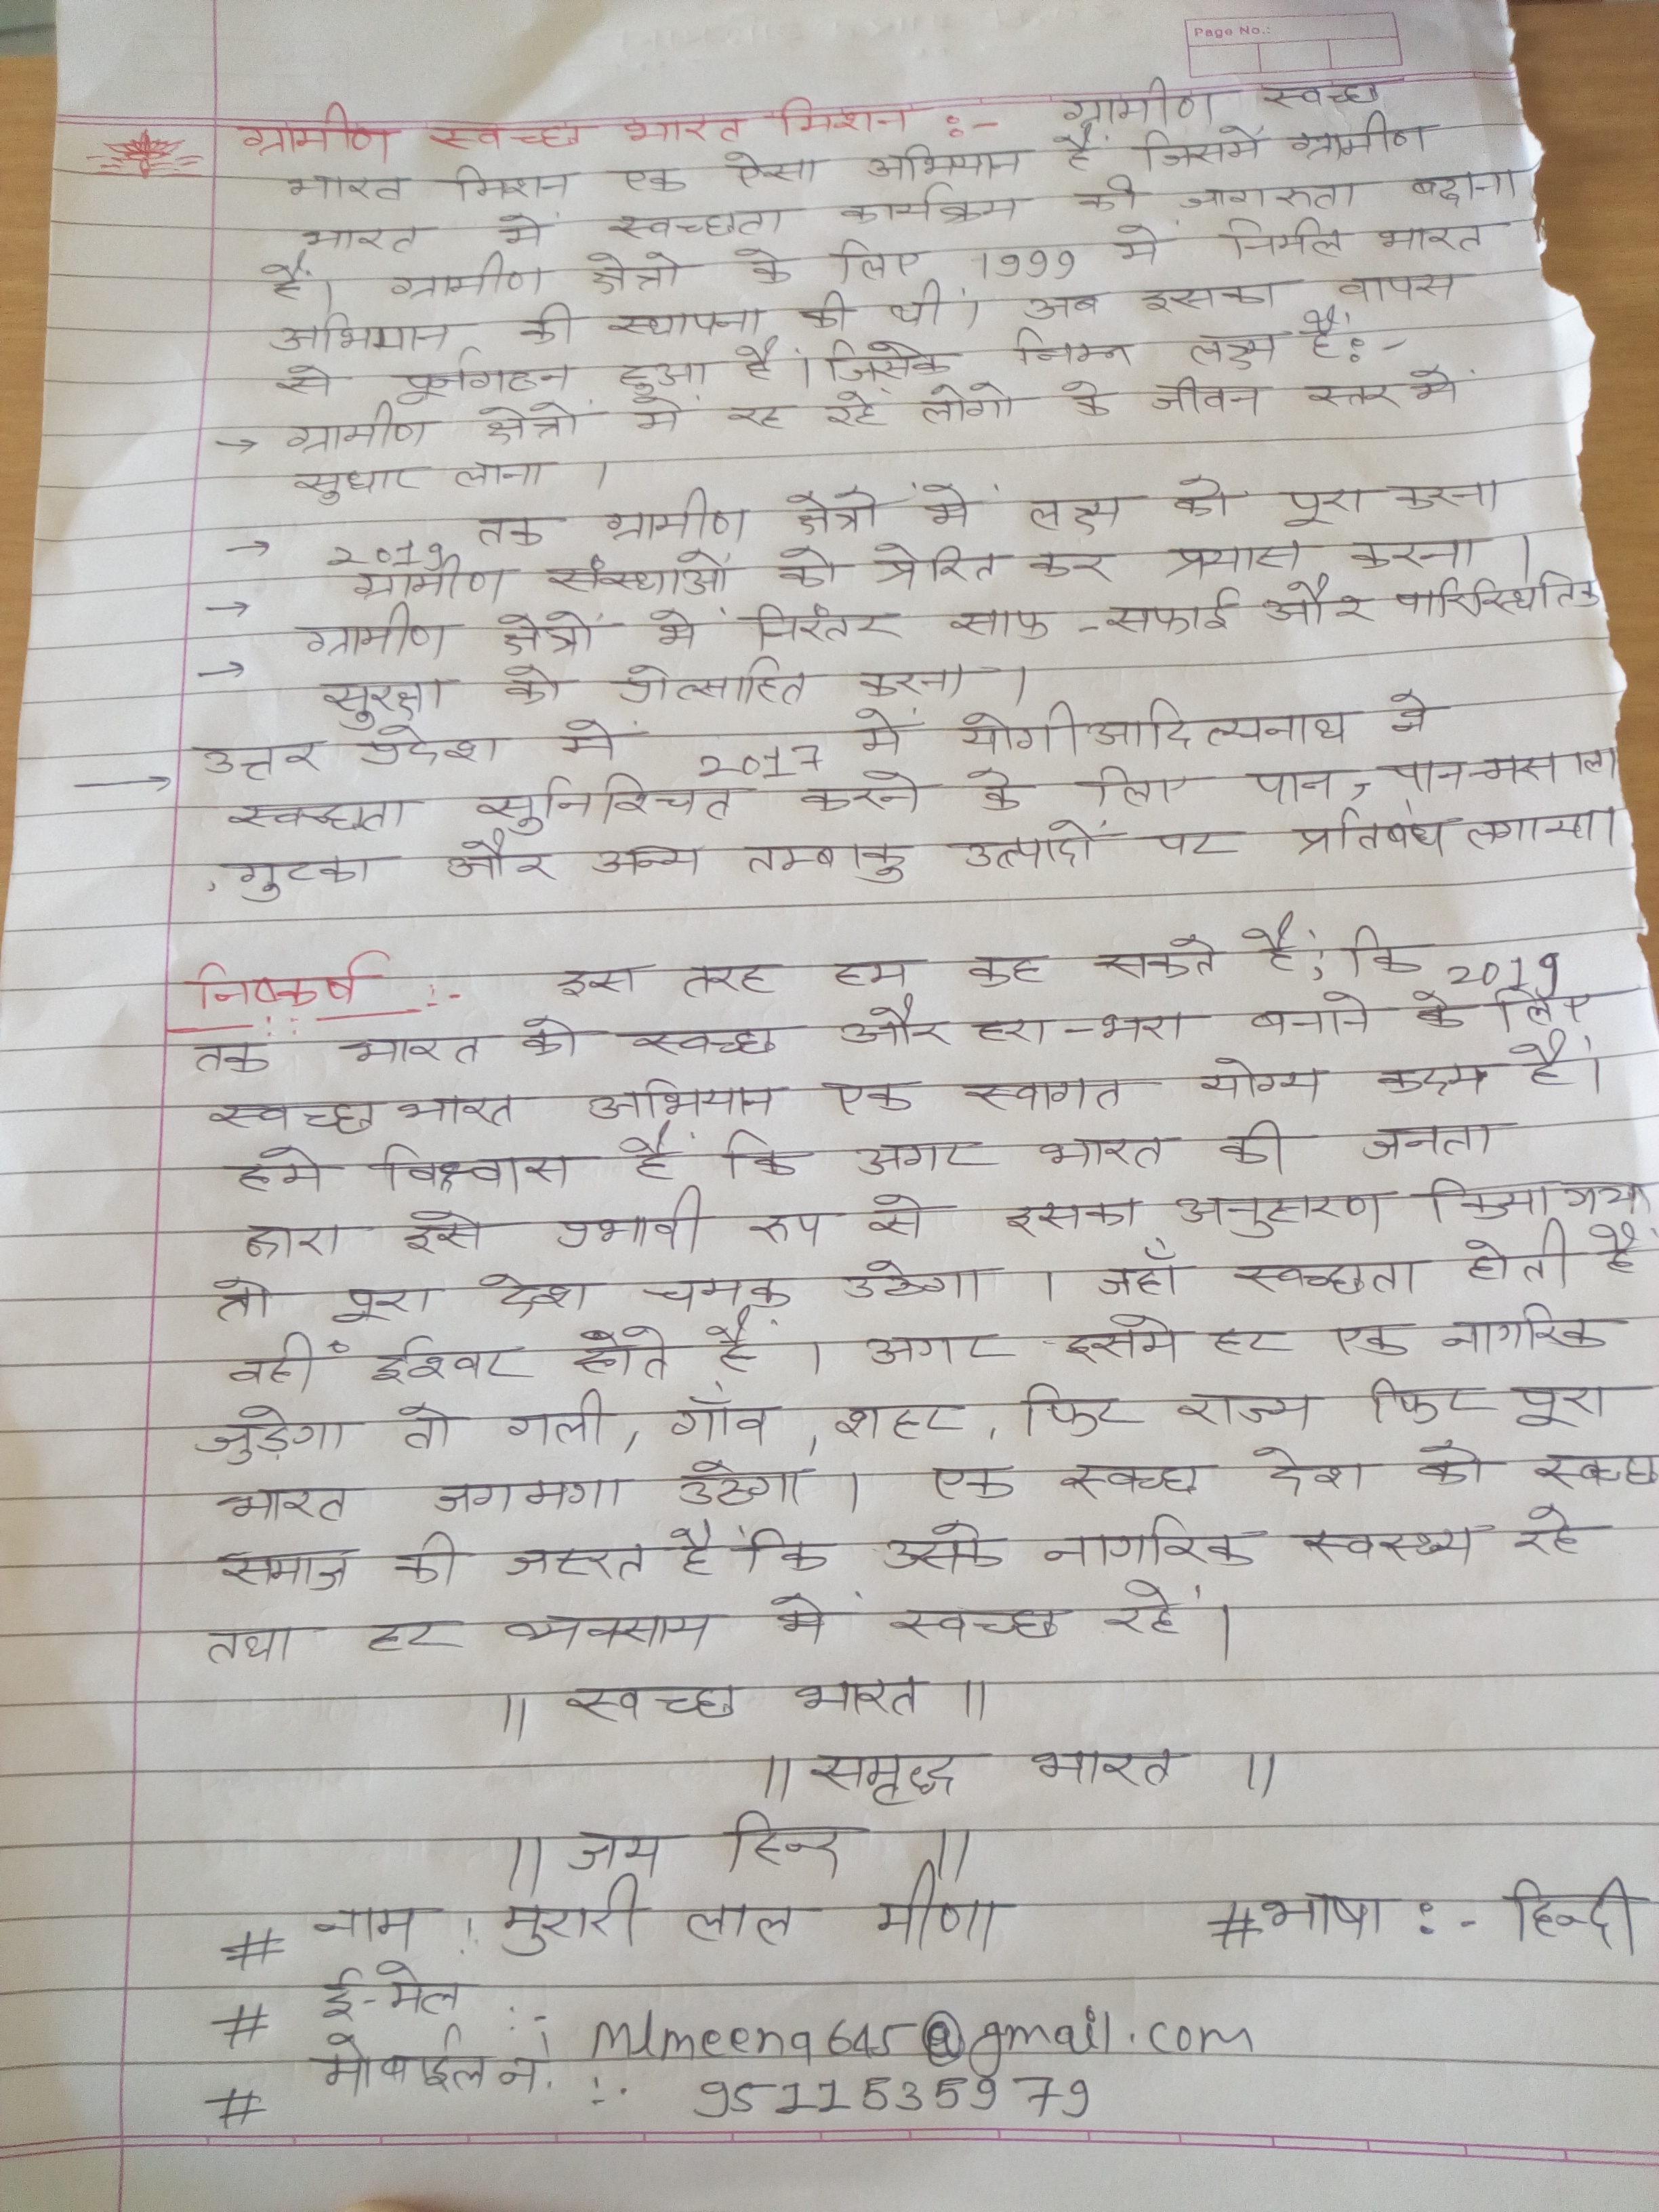 Page No.:
ग्रामीण स्वच्छ भारत मिशन :- ग्रामीण स्वच्छ
भारत मिशन एक ऐसा अभियान हैं जिसमें ग्रामीण
भारत में स्वच्छता कार्यक्रम की जागरुता बढ़ाना
हैं। ग्रामीण क्षेत्रो के लिए 1999 में निर्मल भारत
अभियान की स्थापना की थी। अब इसका वापस
से पूर्नगठन हुआ हैं। जिसके निम्न लक्ष्य हैं:-
→ ग्रामीण क्षेत्रों में रह रहें लोगो के जीवन स्तर में
सुधार लाना ।
→ 2019 तक ग्रामीण क्षेत्रों में लक्ष्य को पूरा करना
→ ग्रामीण संस्थाओं को प्रेरित कर प्रयास करना ।
→ ग्रामीण क्षेत्रों में निरंतर साफ-सफाई और पारिस्थितिक
सुरक्षा को प्रोत्साहित करना ।
→ उत्तर प्रदेश में 2017 में योगीआदित्यनाथ ने
स्वच्छता सुनिश्चित करने के लिए पान, पान-मसाला
, गुटका और अन्य तम्बाकु उत्पादों पर प्रतिबंध लगाया।
निष्कर्ष :- इस तरह हम कह सकते हैं, कि 2019
तक भारत को स्वच्छ और हरा-भरा बनाने के लिए
स्वच्छ भारत अभियान एक स्वागत योग्य कदम हैं।
हमे विश्वास हैं कि अगर भारत की जनता
द्वारा इसे प्रभावी रुप से इसका अनुसरण किया गया
तो पूरा देश चमक उठेगा । जहाँ स्वच्छता होती हैं
वहीँ ईश्वर होते हैं । अगर इसमे हर एक नागरिक
जुड़ेगा तो गली, गाँव, शहर, फिर राज्य फिर पूरा
भारत जगमगा उठेगा। एक स्वच्छ देश को स्वच्छ
समाज की जरुरत हैं कि उसके नागरिक स्वस्थ्य रहे
तथा हर व्यवसाय में स्वच्छ रहें।
॥ स्वच्छ भारत ॥
॥ समृद्ध भारत ॥
॥ जय हिन्द ॥
# नाम : मुरारी लाल मीणा # भाषा :- हिन्दी
# ई-मेल :- mlmeena645@gmail.com
# मोबाईल नं. :- 9511535979